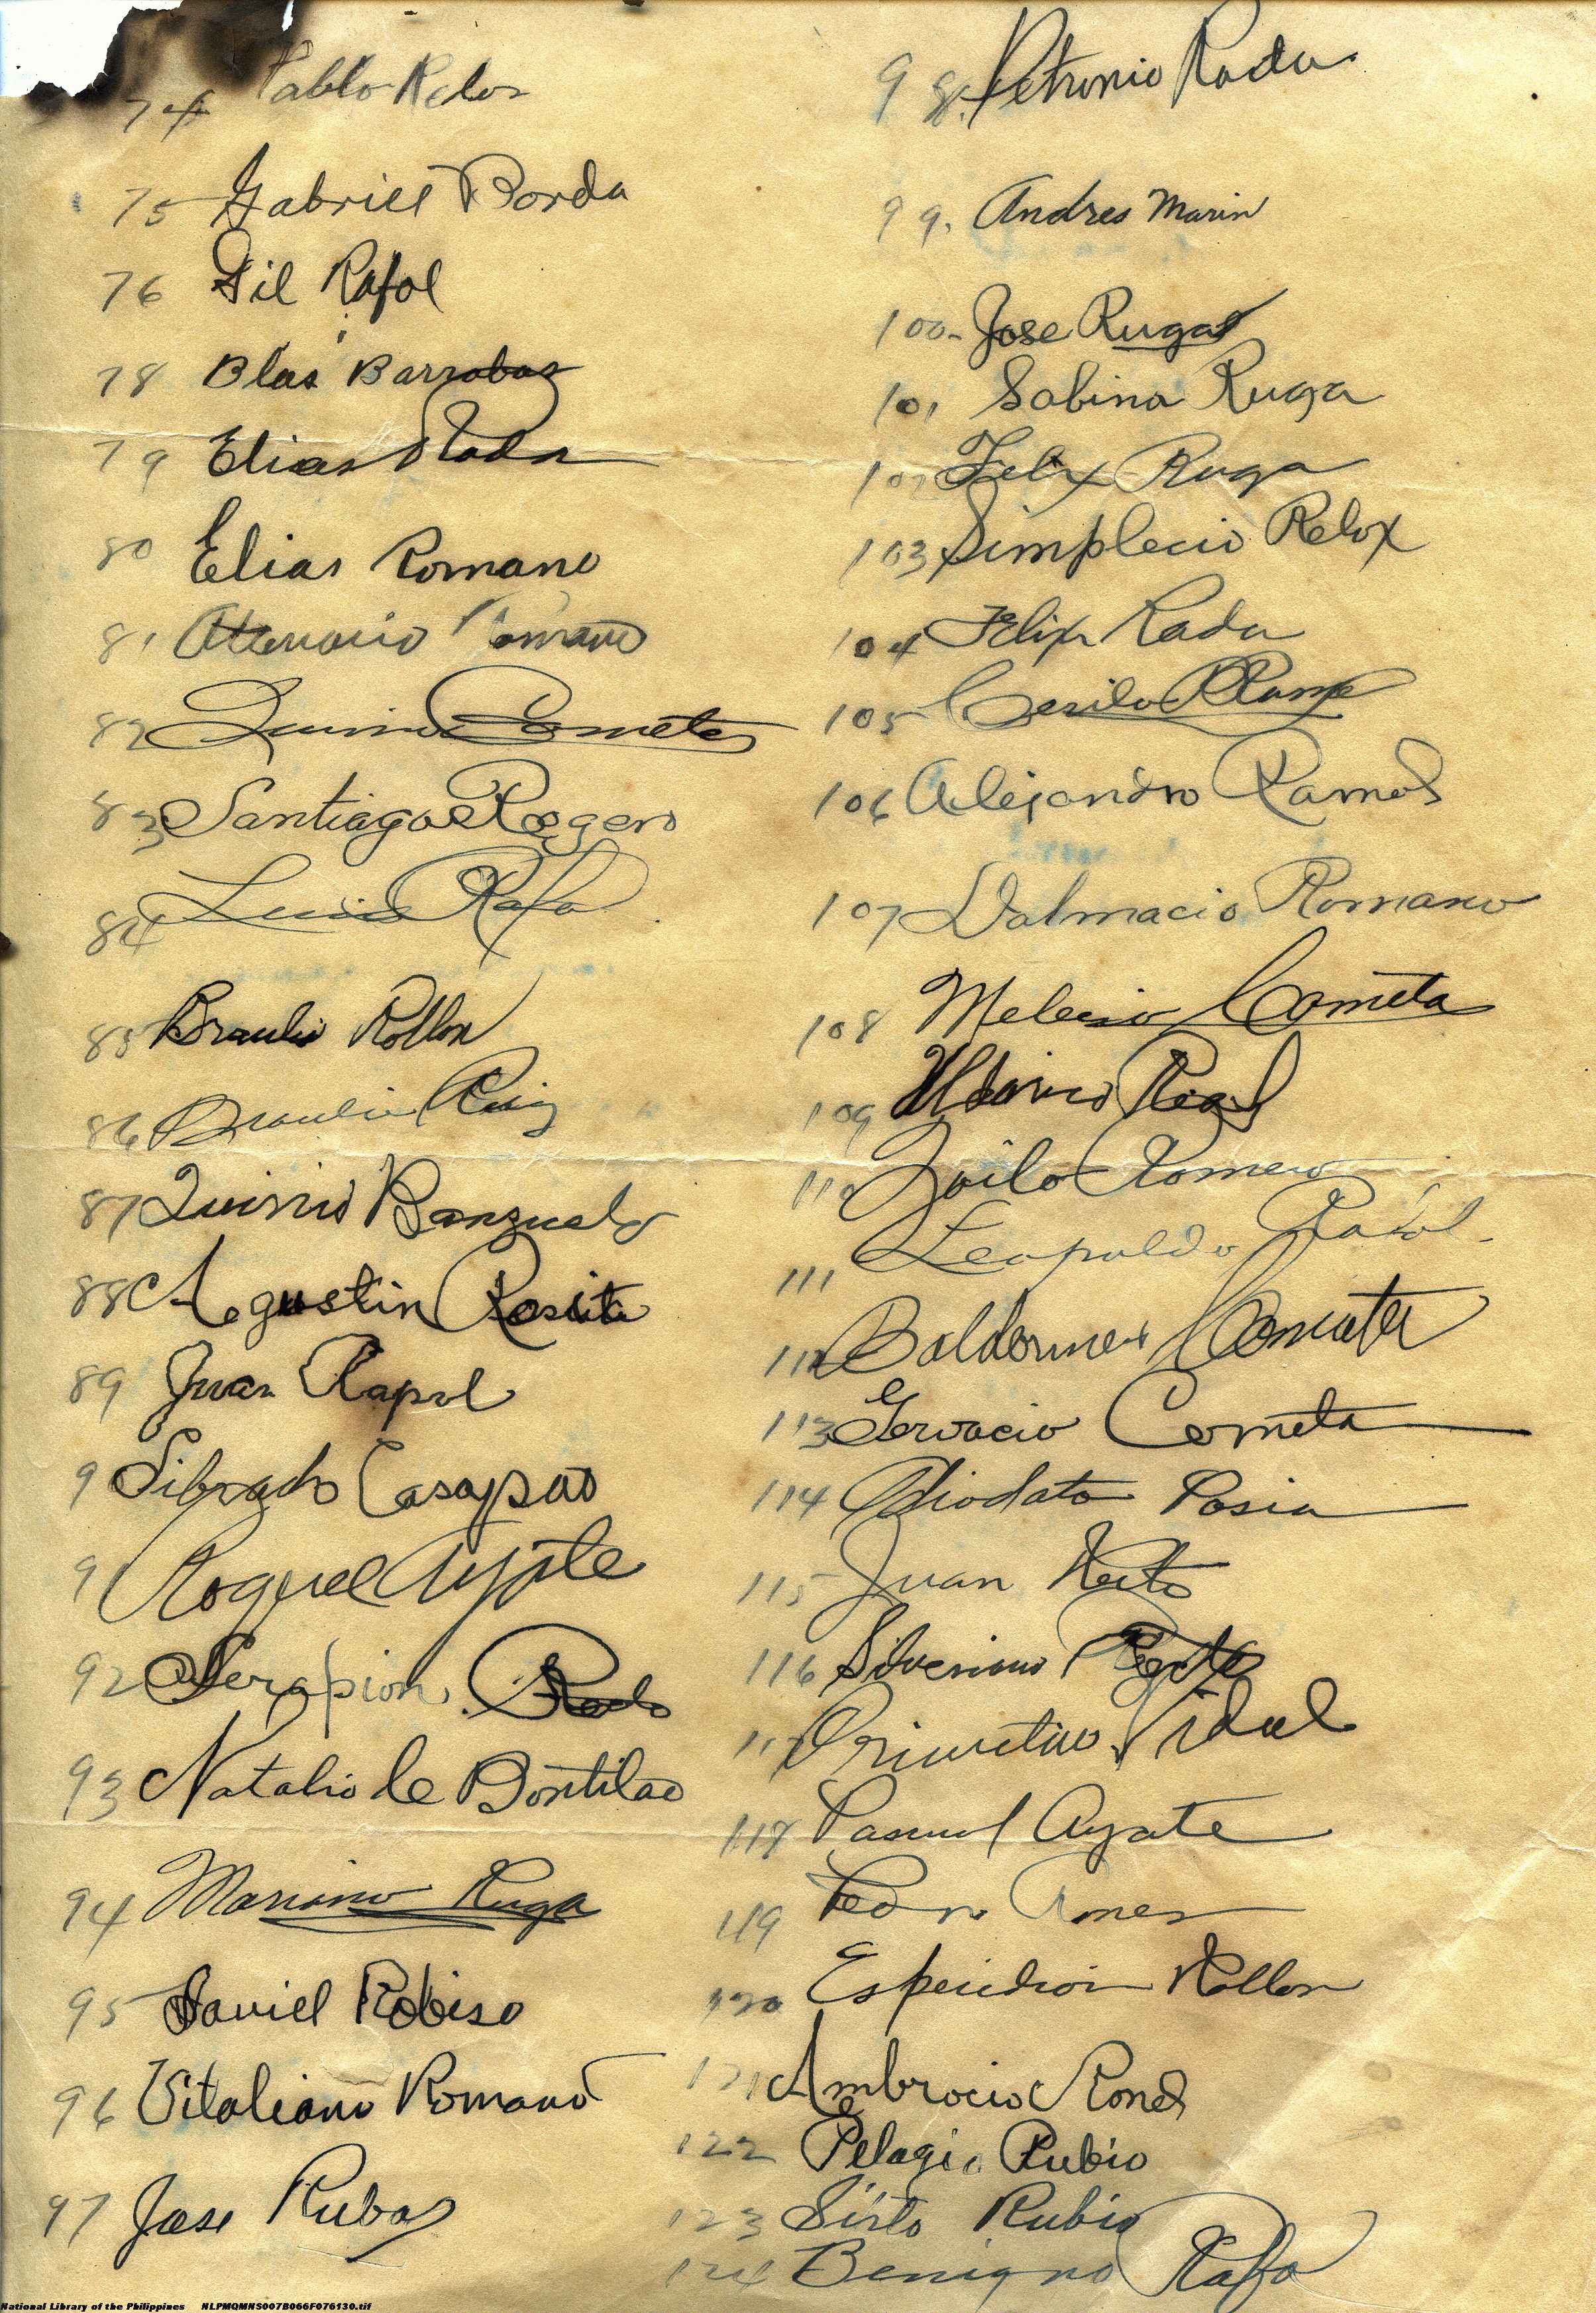 74 Pablo Relos
75 Gabriel Borda
76 Gil Rafol
78 Blas Barrabas
79 Elias Rada
80 Elias Romano
81 Romano
82 Quirino Cometa
83 Santiago Rogero
84 Luis Rafa
85 Braulio Rollon
86 Braulio Ruiz
87 Quirino Banzuela
88 Agustin Rosita
89 Juan Rapol
9 Librado Casapao
91 Roque Ayate
92 Serapion
93 Natalio de Bontilao
94 Mariano Ruga
95 Daniel Robiso
96 Vitaliano Romano
97 Jose Rubas
98. Petronio Rada
99. Andres Marin
100- Jose Ruga
101 Sabina Ruga
102 Felix Ruga
103 Simplecio Relox
104 Felix Rada
105
106 Alejandro Ramos
107 Dalmacio Romano
108 Melecio Cometa
109 Real
110 Zoilo Romero
111 Leopoldo Rafol-
112 Baldomer
113 Gervacio Cometa
114 Diodato Posia
115 Juan Recto
116 Silverino
117 Primetivo Vidal
118 Pascual Ayate
119 Pedro
120 Esperidion Rollon
121 Ambrocio Rones
122 Pelagio Rubio
123 Sisto Rubio
124 Benigno Rafa
National Library of the Philippines NLPMQMNS007B066F076130.tif